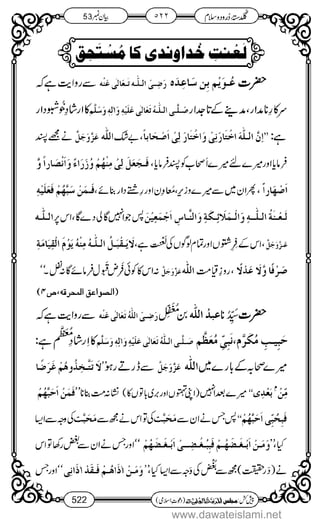 گلدستۂ درود و سلام ۵۲۲ بیان نمبر 53
لعنتِ خداوندی کا مُسْتَحِق
حضرت عُوَیْم بِن سَاعِدَہ رَضِیَ اللہُ تَعَالٰی عَنْہ سے روایت ہے کہ
سرکارِ نامدار، مدینے کے تاجدار صَلَّی اللہُ تَعَالٰی عَلَیْہِ وَاٰلِہٖ وَسَلَّم کا ارشادِ خوشبودار
ہے: ’’اِنَّ اللہَ اخْتَارَنِیْ وَاخْتَارَ لِیْ اَصْحَاباً، بے شک اللہ عَزَّوَجَلَّ نے مجھے پسند
فرمایا اور میرے لئے میرے اصحاب کو پسند فرمایا، فَجَعَلَ لِیْ مِنْھُمْ وُزَرَاءَ وَّاَنْصَاراً وَّ
اَصْھَاراً، پھر ان میں سے میرے وزیر، معاون اور رشتے دار بنائے، فَمَنْ سَبَّھُمْ فَعَلَیْہِ
لَعْنَۃُ اللہِ وَالْمَلٰٓئِکَۃِ وَالنَّاسِ اَجْمَعِیْنَ پس جو انہیں گالی دے گا، اس پر اللہ
عَزَّوَجَلَّ، اس کے فرشتوں اور تمام لوگوں کی لعنت ہے، لَایَقْبَلُ اللہُ مِنْہُ یَوْمَ الْقِیَامَۃِ
صَرْفًا وَّلَا عَدْلًا، روزِ قیامت اللہ عَزَّوَجَلَّ اس کا نہ کوئی فرض قبول فرمائے گا نہ نفل۔‘‘
(الصواعق المحرقہ، ص۴)
حضرت سَیِّدُنا عبدُاللہ بِن مُغَفَّل رَضِیَ اللہُ تَعَالٰی عَنْہ سے روایت ہے کہ
حبیبِ مُکَرَّم، نَبِیِّ مُعَظَّم صَلَّی اللہُ تَعَالٰی عَلَیْہِ وَاٰلِہٖ وَسَلَّم کا ارشادِ مُعَظَّم ہے:
میرے صحابہ کے بارے میں اللہ عَزَّوَجَلَّ سے ڈرتے رہو ’’لَاتَتَّخِذُوْھُمْ غَرَضًا
مِّنْ م بَعْدِیْ‘‘ میرے بعد انہیں (اپنی تہمتوں اور بری باتوں کا) نشانہ مت بنانا ’’فَمَنْ اَحَبَّھُمْ
فَبِحُبِّیْ اَحَبَّھُمْ‘‘ پس جس نے ان سے مَحَبَّت کی تو اس نے مجھ سے مَحَبَّت کی وجہ سے ایسا
کیا، ’’وَمَنْ اَبْغَضَھُمْ فَبِبُغْضِیْ اَبْغَضَھُمْ‘‘ اور جس نے ان سے بغض رکھا تو اس
نے (درحقیقت) مجھ سے بغض کی وجہ سے ایسا کیا، ’’وَمَنْ اٰذَاھُمْ فَقَدْ اٰذَانِیْ‘‘ اور جس
522
www.dawateislami.net